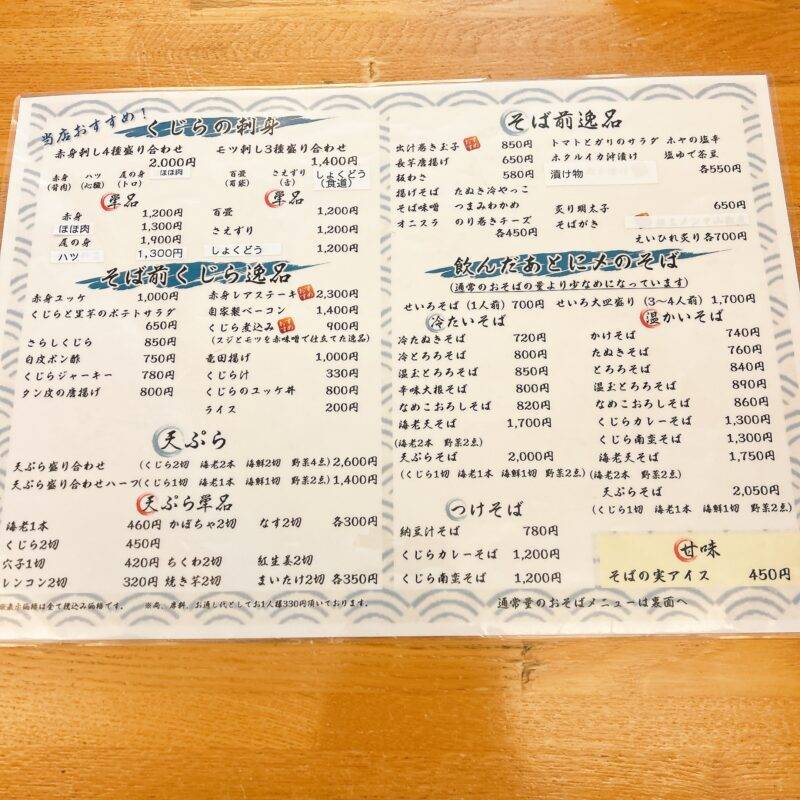 当店おすすめ！
くじらの刺身
赤身刺し4種盛り合わせ 2,000円
赤身(背肉) ハツ(心臓) 尾の身(トロ) ほほ肉
モツ刺し3種盛り合わせ 1,400円
百畳(胃袋) さえずり(舌) しょくどう(食道)
単品
赤身 1,200円
ほほ肉 1,200円
尾の身 1,900円
ハツ 1,300円
単品
百畳 1,200円
さえずり 1,200円
しょくどう 1,200円
そば前くじら逸品
赤身ユッケ 1,000円
くじらと里芋のポテトサラダ
650円
さらしくじら 850円
白皮ポン酢 750円
くじらジャーキー 780円
タン皮の唐揚げ 800円
赤身レアステーキ 2,300円
自家製ベーコン 1,400円
くじら煮込み 900円
(スジとモツを赤味噌で仕立てた逸品)
竜田揚げ 1,000円
くじら汁 330円
くじらのユッケ丼 800円
ライス 200円
天ぷら
天ぷら盛り合わせ (くじら2切 海老2本 海鮮2切 野菜4点) 2,600円
天ぷら盛り合わせハーフ (くじら1切 海老1本 海鮮1切 野菜2点) 1,400円
天ぷら単品
海老1本 460円 かぼちゃ2切 なす2切 各300円
くじら2切 450円
穴子1切 420円 ちくわ2切 紅生姜2切
レンコン2切 320円 焼き芋2切 まいたけ2切 各350円
※表示価格は全て税込み価格です。 ※尚、席料、お通し代としてお1人様330円頂いております。
そば前逸品
出汁巻き玉子 850円
長芋唐揚げ 650円
板わさ 580円
揚げそば たぬき冷やっこ
そば味噌 つまみわかめ
オニスラ のり巻きチーズ
各450円
トマトとガリのサラダ ホヤの塩辛
ホタルイカ沖漬け 塩ゆで茶豆
漬け物 各550円
炙り明太子 650円
そばがき
えいひれ炙り 各700円
飲んだあとに〆のそば
(通常のおそばの量より少なめになっています)
せいろそば (1人前) 700円 せいろ大皿盛り (3〜4人前) 1,700円
冷たいそば
冷たぬきそば 720円
冷とろろそば 800円
温玉とろろそば 850円
辛味大根そば 800円
なめこおろしそば 820円
海老天そば 1,700円
(海老2本 野菜2点)
天ぷらそば 2,000円
(くじら1切 海老1本 海鮮1切 野菜2点)
温かいそば
かけそば 740円
たぬきそば 760円
とろろそば 840円
温玉とろろそば 890円
なめこおろしそば 860円
くじらカレーそば 1,300円
くじら南蛮そば 1,300円
海老天そば 1,750円
(海老2本 野菜2点)
天ぷらそば 2,050円
(くじら1切 海老1本 海鮮1切 野菜2点)
つけそば
納豆汁そば 780円
くじらカレーそば 1,200円
くじら南蛮そば 1,200円
甘味
そばの実アイス 450円
通常量のおそばメニューは裏面へ